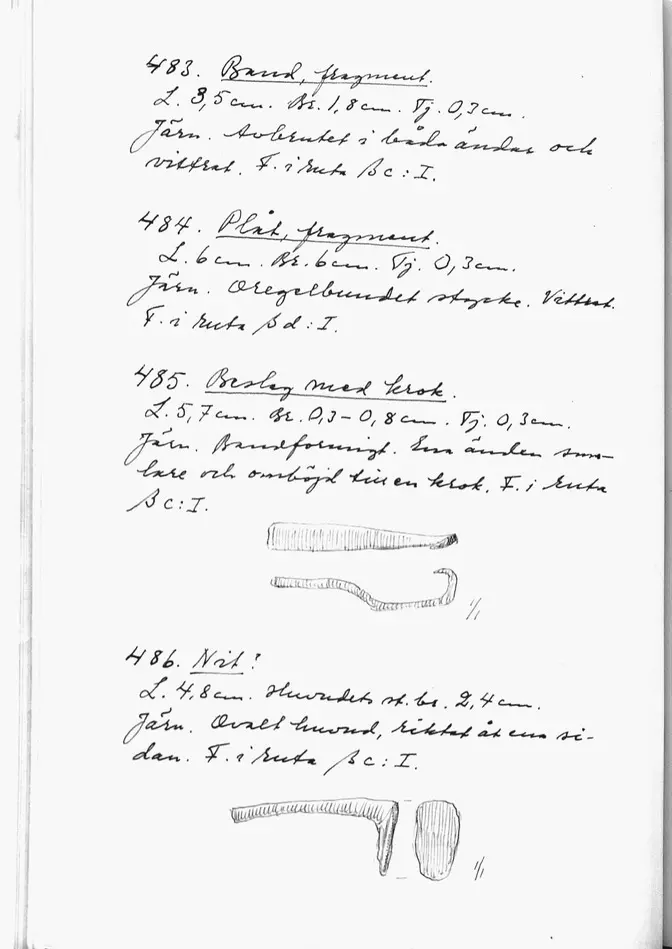 483. Band, fragment.
L. 3,5 cm. Br. 1,8 cm. Tj. 0,3 cm.
Järn. Avbrutet i båda ändar och
vittrat. F. i ruta βc:I.
484. Plåt, fragment.
L. 6 cm. Br. 6 cm. Tj. 0,3 cm.
Järn. Oregelbundet stycke. Vittrat.
F. i ruta βd:I.
485. Beslag med krok.
L. 5,7 cm. Br. 0,3–0,8 cm. Tj. 0,3 cm.
Järn. Bandformigt. Ena änden sma-
lare och ombøjd till en krok. F. i ruta
βc:I.
1/1
486. Nit?
L. 4,8 cm. Huvudets st. br. 2,4 cm.
Järn. Ovalt huvud, riktat åt ena si-
dan. F. i ruta βc:I.
1/1